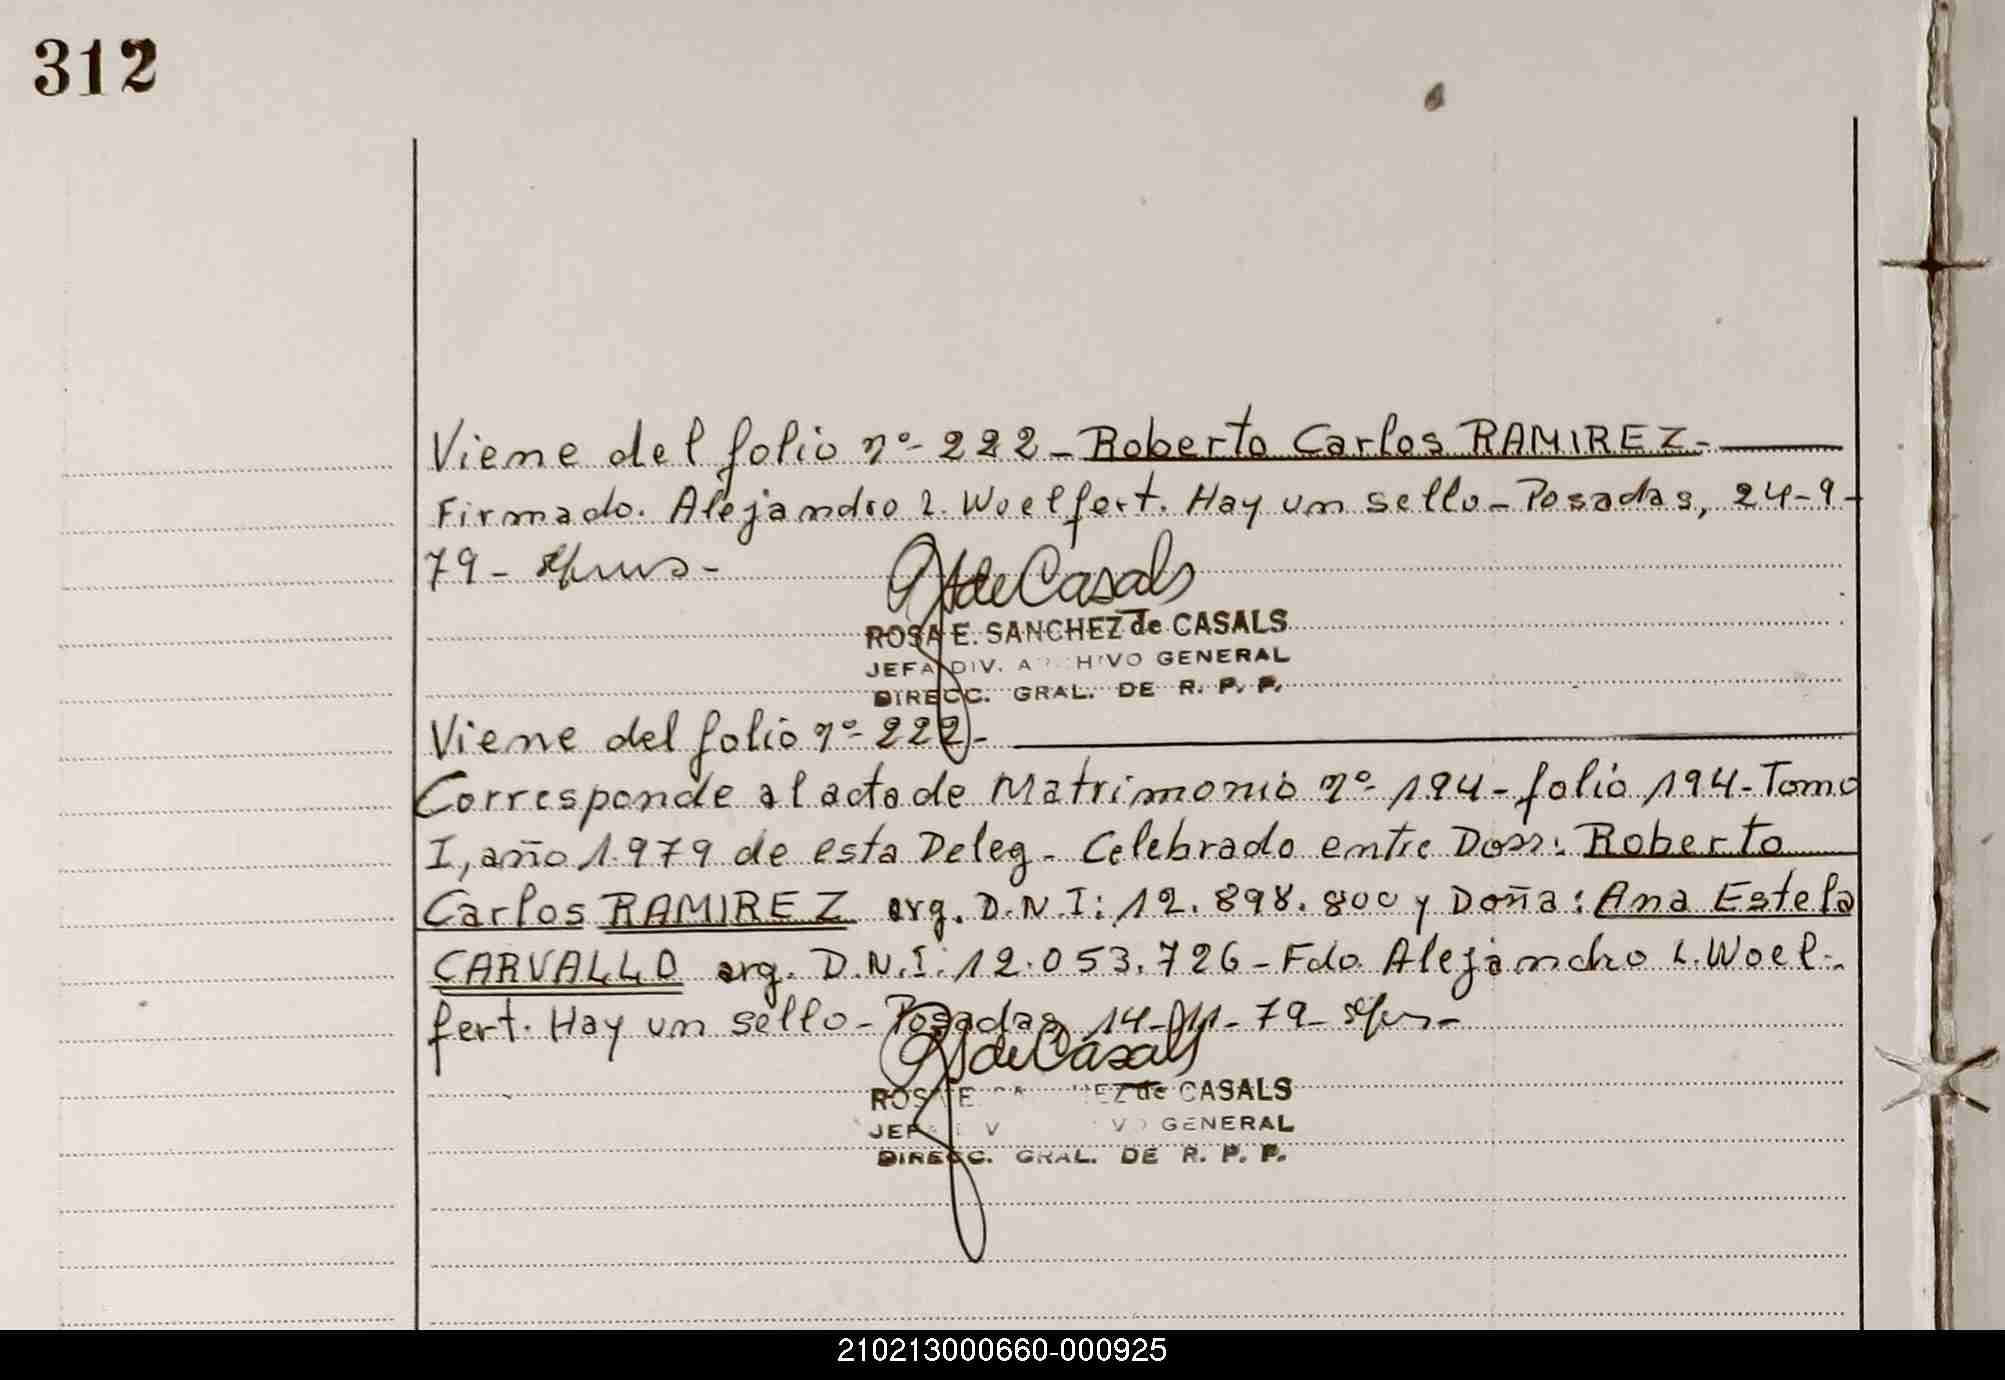 312
Viene del folio nº- 222- Roberto Carlos RAMIREZ-
Firmado. Alejandro L. Woelfert. Hay un sello- Posadas, 24-9-
79-
de Casals
ROSA E. SANCHEZ de CASALS
JEFA DIV. ARCHIVO GENERAL
DIRECC. GRAL. DE R. P. P.
Viene del folio nº- 222-
Corresponde al acta de Matrimonio nº- 194- folio 194- Tomo
I, año 1.979 de esta Deleg- Celebrado entre Don: Roberto
Carlos RAMIREZ arg. D.N.I: 12.898.800 y Doña: Ana Estela
CARVALLO arg. D.N.I: 12.053.726- Fdo. Alejandro L. Woel-
fert. Hay un sello- Posadas 14-11-79-
de Casals
ROSA E. EZ de CASALS
JEFA V VO GENERAL
DIRECC. GRAL. DE R. P. P.
210213000660-000925